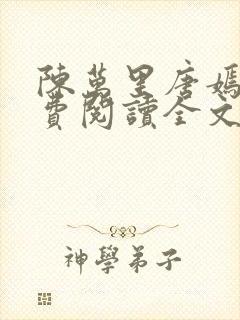 陳萬里唐嫣
費閱讀全文
神學弟子